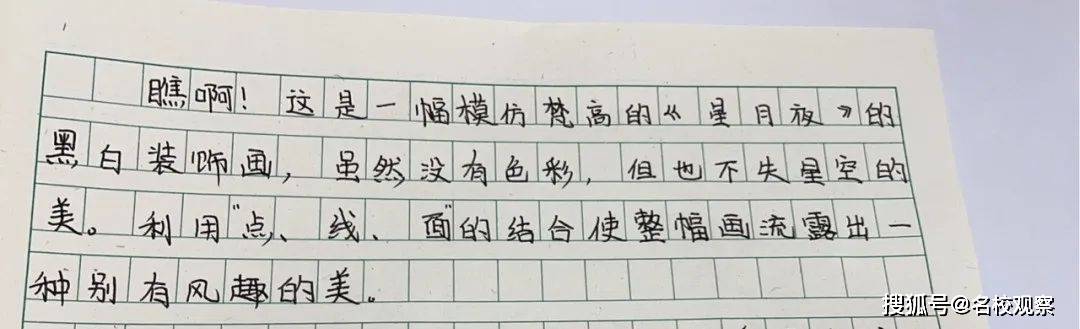 瞧啊!这是一幅模仿梵高的《星月夜》的
黑白装饰画,虽然没有色彩,但也不失星空的
美。利用"点、线、面"的结合使整幅画流露出一
种别有风趣的美。
搜狐号@名校观察